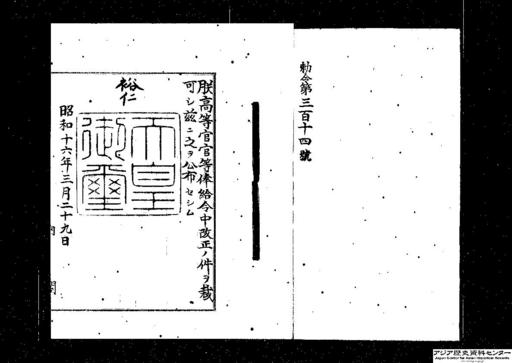 勅令第三百十四號
朕高等官官等俸給令中改正ノ件ヲ裁
可シ茲ニ之ヲ公布セシム
裕仁
天皇
御璽
昭和十六年三月二十九日
内閣
アジア歴史資料センター
Japan Center for Asian Historical Records